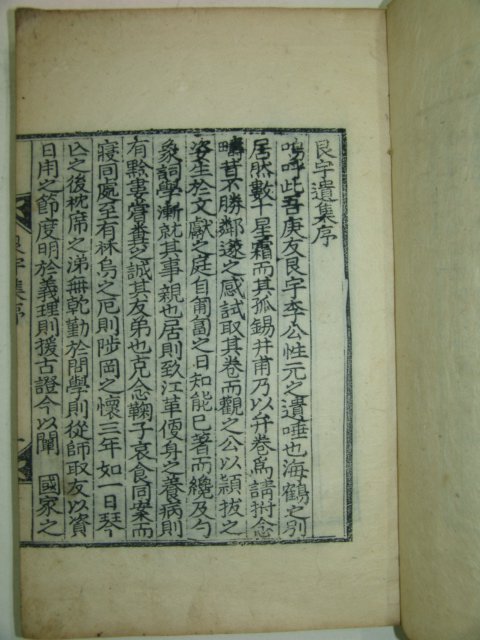 艮宇遺集序
嗚呼此吾庚友艮宇李公性元之遺唾也海鶴之別
居然數十星霜而其孤錫井甫乃以弁卷爲請拊念
疇昔不勝鄰邃之感試取其卷而觀之公以穎拔之
姿生於文獻之庭自匍匐之日知能已著而纔及勺
象詞學漸就其事親也居則致江革便身之養病則
有黔婁嘗糞之誠其友弟也克念鞠子哀食同案而
寢同處至有秝烏之厄則陟岡之懷三年如一日琹
亡之後枕席之涕無乾勤於問學則從師取友以資
日用之節度明於義理則援古證今以闡 國家之
艮宇集序
一